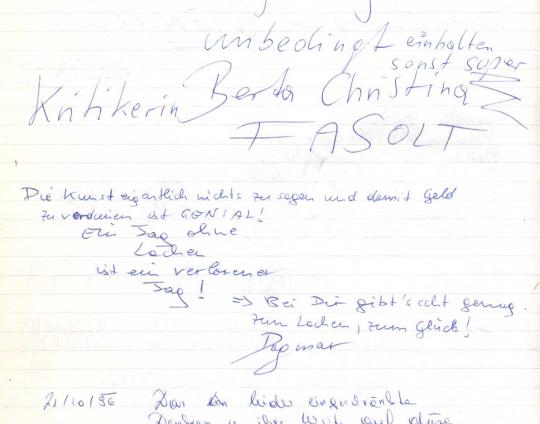 unbedingt einhalten
sonst super
Kritikerin Berta Christina
FASOLT
Die Kunst eigentlich nichts zu sagen und damit Geld
zu verdienen ist GENIAL!
Ein Tag ohne
Lachen
ist ein verlorener
Tag!
=> Bei Dir gibt's echt genug
zum Lachen, zum Glück!
Dagmar
21/10/96 Das leider eingeschränkte
Denken u. ihre